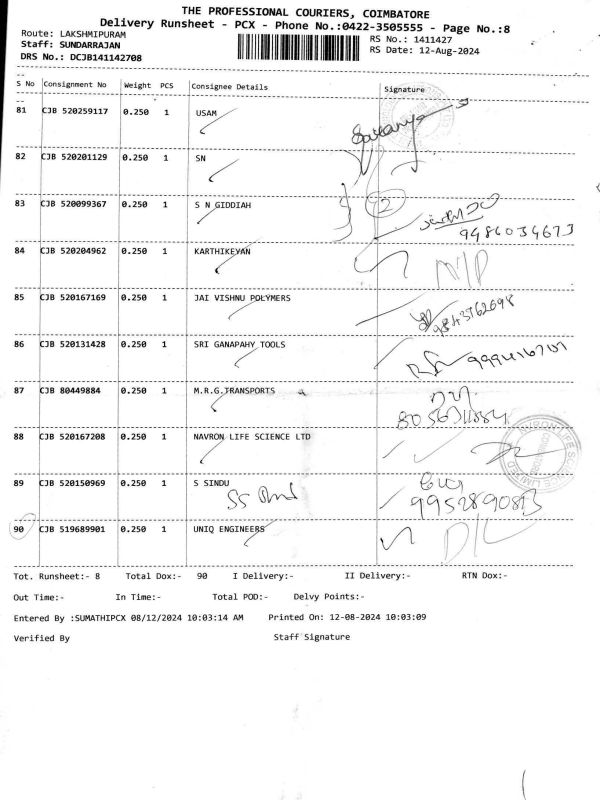 THE PROFESSIONAL COURIERS, COIMBATORE
Delivery Runsheet - PCX - Phone No.:0422-3505555 - Page No.:8
Route: LAKSHMIPURAM RS No.: 1411427
Staff: SUNDARRAJAN RS Date: 12-Aug-2024
DRS No.: DCJB141142708
S No Consignment No Weight PCS Consignee Details Signature
81 CJB 520259117 0.250 1 USAM
82 CJB 520201129 0.250 1 SN
83 CJB 520099367 0.250 1 S N GIDDIAH 2
9486034673
84 CJB 520204962 0.250 1 KARTHIKEYAN
85 CJB 520167169 0.250 1 JAI VISHNU POLYMERS
9843762698
86 CJB 520131428 0.250 1 SRI GANAPAHY TOOLS
87 CJB 80449884 0.250 1 M.R.G.TRANSPORTS
88 CJB 520167208 0.250 1 NAVRON LIFE SCIENCE LTD
89 CJB 520150969 0.250 1 S SINDU
90 CJB 519689901 0.250 1 UNIQ ENGINEERS D/L
Tot. Runsheet:- 8 Total Dox:- 90 I Delivery:- II Delivery:- RTN Dox:-
Out Time:- In Time:- Total POD:- Delvy Points:-
Entered By :SUMATHIPCX 08/12/2024 10:03:14 AM Printed On: 12-08-2024 10:03:09
Verified By Staff Signature